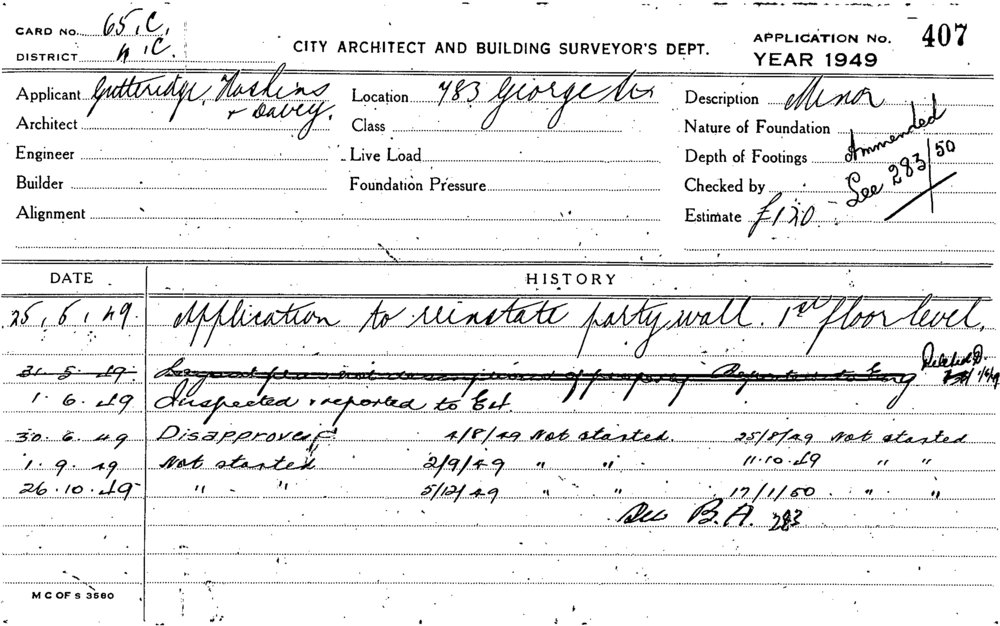 CARD NO. 65, C,
DISTRICT C.
CITY ARCHITECT AND BUILDING SURVEYOR'S DEPT.
APPLICATION No. 407
YEAR 1949
Applicant Gutteridge, Haskins & Davey.
Architect
Engineer
Builder
Alignment
Location 783 George St
Class
Live Load
Foundation Pressure
Description Minor
Nature of Foundation
Depth of Footings
Checked by
Estimate £120
Ammended
See 283/50
DATE HISTORY
25, 5, 49. Application to reinstate party wall. 1st floor level.
31. 5. 49.
1. 6. 49 Inspected & reported to
30. 6. 49 Disapproved 4/8/49 Not started. 25/8/49 Not started
1. 9. 49 Not started 2/9/49 " " 11.10.49 " "
26.10.49 " " 5/12/49 " " 17/1/50 " "
See B.A. 283
M C OF S 3580